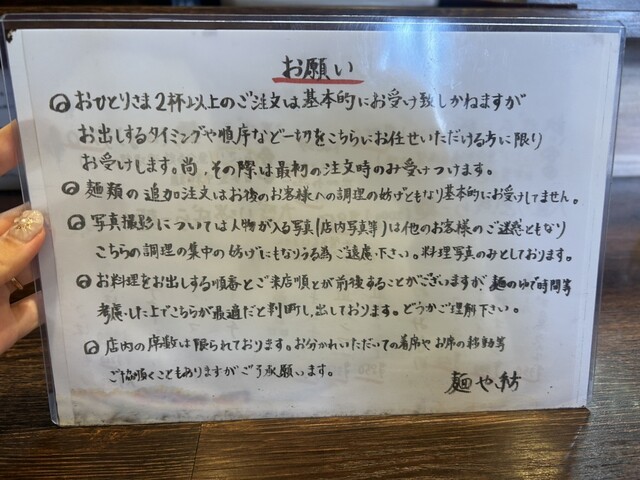 お願い
おひとりさま2杯以上のご注文は基本的にお受け致しかねますが
お出しするタイミングや順序など一切をこちらにお任せいただける方に限り
お受けします。尚、その際は最初の注文時のみ受けつけます。
麺類の追加注文はお後のお客様への調理の妨げともなり基本的にお受けしてません。
写真撮影については人物が入る写真(店内写真等)は他のお客様のご迷惑ともなり
こちらの調理の集中の妨げにもなりうる為ご遠慮下さい。料理写真のみとしております。
お料理をお出しする順番とご来店順とが前後することがございますが、麺のゆで時間等
考慮した上でこちらが最適だと判断し、出しております。どうかご理解下さい。
店内の席数は限られております。お分かれいただいての着席やお席の移動等
ご協力頂くこともありますがご了承願います。
麺や 紡